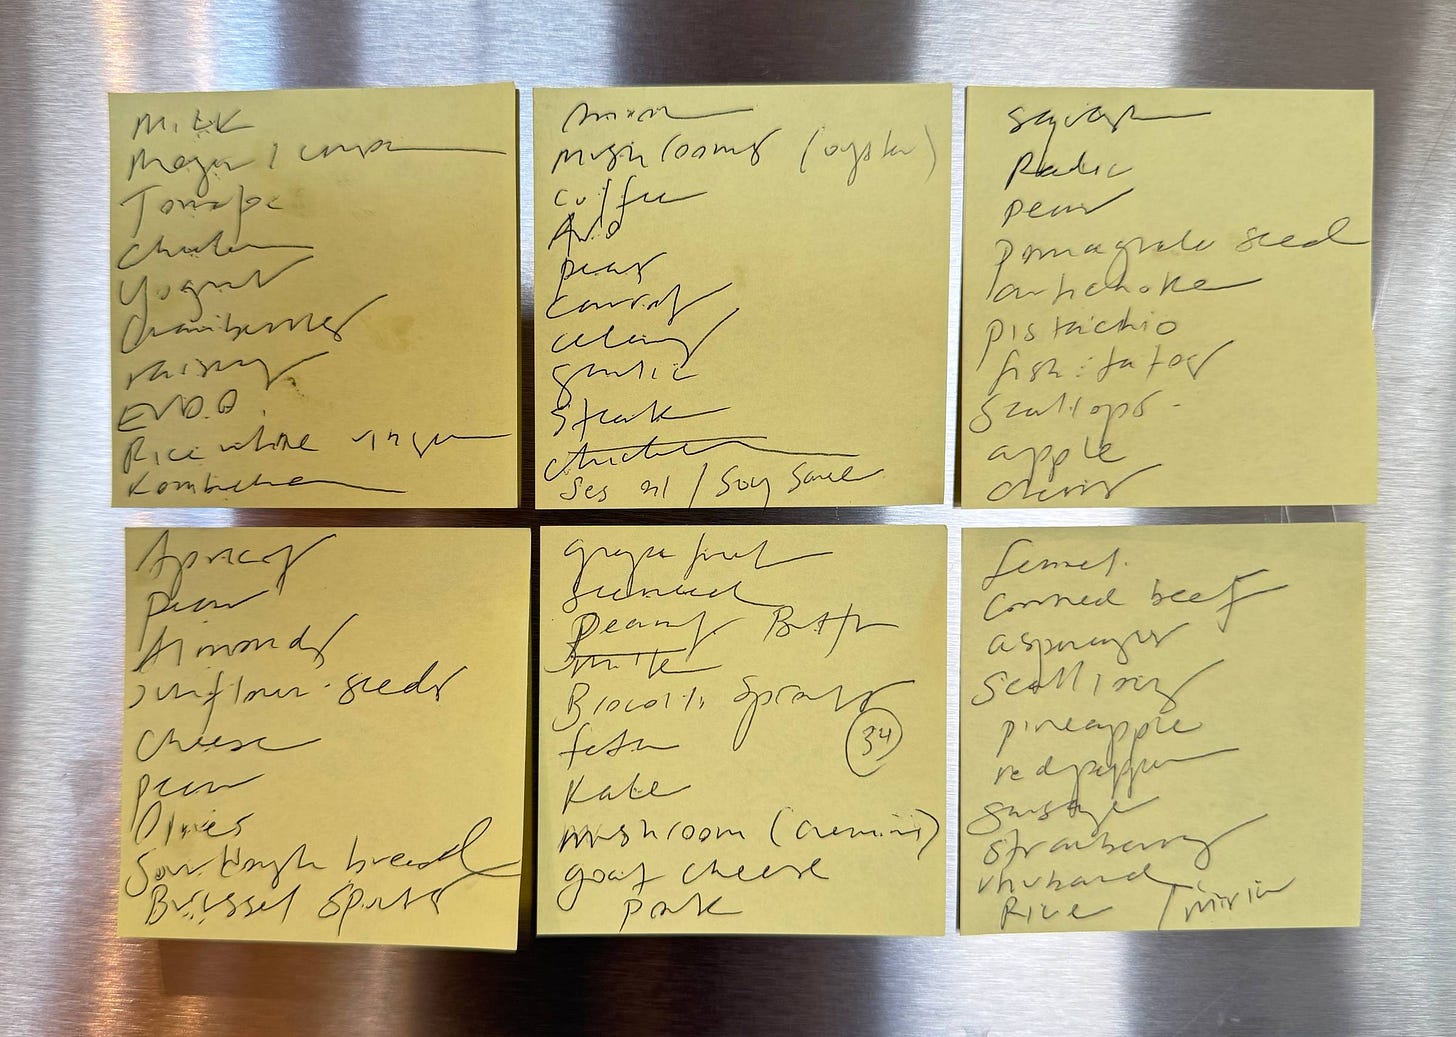 Milk
Tomato
Chicken
Yogurt
Cranberries
raisins
EVOO
Rice wine vinegar
Kombucha
onion
Mushrooms (oyster)
coffee
Avo
pears
carrots
celery
garlic
Steak
chicken
Ses oil / Soy Sauce
squash
Radic
pears
pomagranate seed
artichoke
pistaichio
fish: 
Scallops.
apple
Apricot
Pear
Almonds
sunflower seeds
Cheese
pecan
Olives
Sourdough bread
Brussel Sprouts
grapefruit
seaweed
Peanut Butter
milk
Brocolli Sprouts
34
feta
Kale
mushroom (cremini)
goat cheese
pork
fennel.
corned beef
asparagus
Scallions
pineapple
red pepper
sausage
strawberry
rhubarb
Rice / mirin